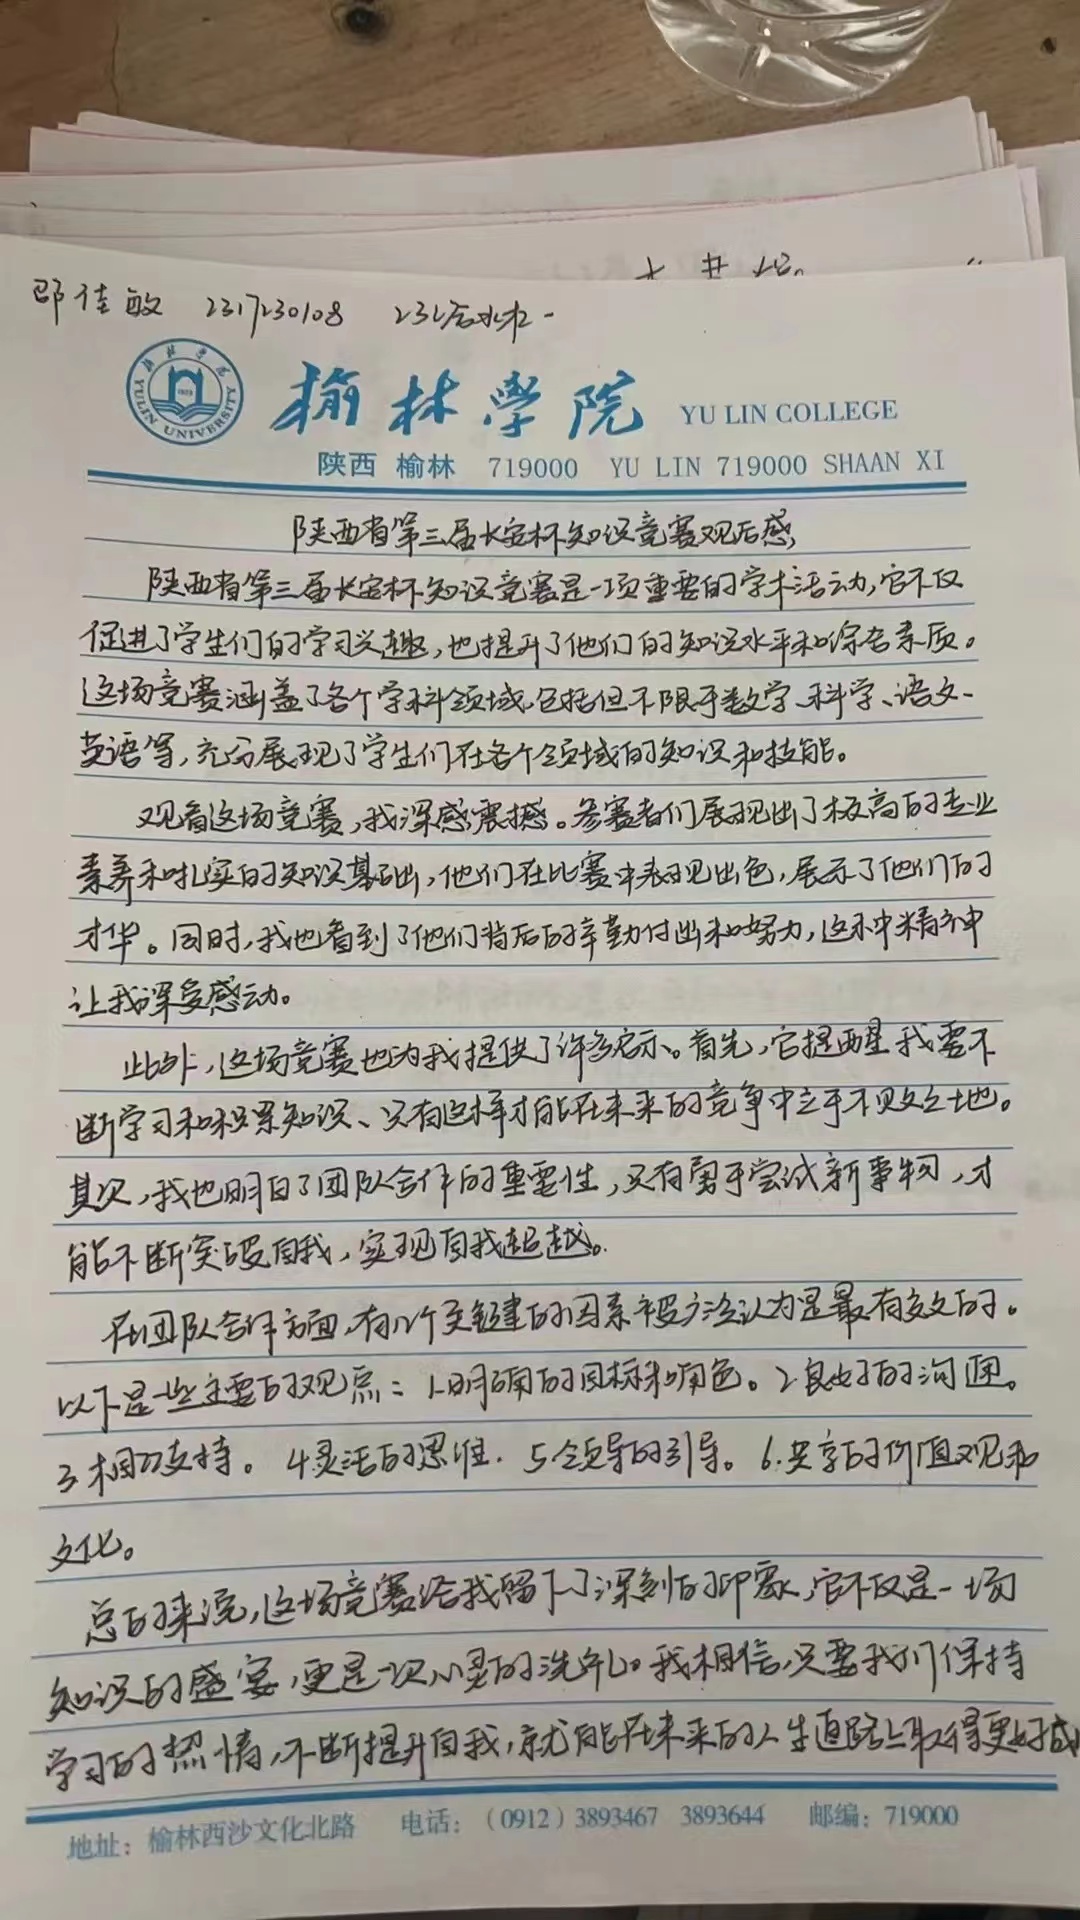 邵佳敏 2317230108 23级治水本一
榆林学院 YU LIN COLLEGE
YULIN UNIVERSITY
陕西 榆林 719000 YU LIN 719000 SHAAN XI
陕西省第三届长安杯知识竞赛观后感
陕西省第三届长安杯知识竞赛是一项重要的学术活动,它不仅
促进了学生们的学习兴趣,也提升了他们的知识水平和综合素质。
这场竞赛涵盖了各个学科领域,包括但不限于数学、科学、语文、
英语等,充分展现了学生们在各个领域的知识和技能。
观看这场竞赛,我深感震撼。参赛者们展现出了极高的专业
素养和扎实的知识基础,他们在比赛中表现出色,展示了他们的
才华。同时,我也看到了他们背后的辛勤付出和努力,这种精神
让我深受感动。
此外,这场竞赛也为我提供了许多启示。首先,它提醒我要不
断学习和积累知识、只有这样才能在未来的竞争中立于不败之地。
其次,我也明白了团队合作的重要性,只有勇于尝试新事物,才
能不断突破自我,实现自我超越。
在团队合作方面,有几个关键的因素被广泛认为是最有效的。
以下是一些主要的观点:1.明确的目标和角色。2.良好的沟通。
3相互支持。4灵活的思维.5领导的引导。6.共享的价值观和
文化。
总的来说,这场竞赛给我留下了深刻的印象,它不仅是一场
知识的盛宴,更是一次心灵的洗礼。我相信,只要我们保持
学习的热情,不断提升自我,就能在未来的人生道路上取得更好成
地址:榆林西沙文化北路 电话:(0912)3893467 3893644 邮编:719000